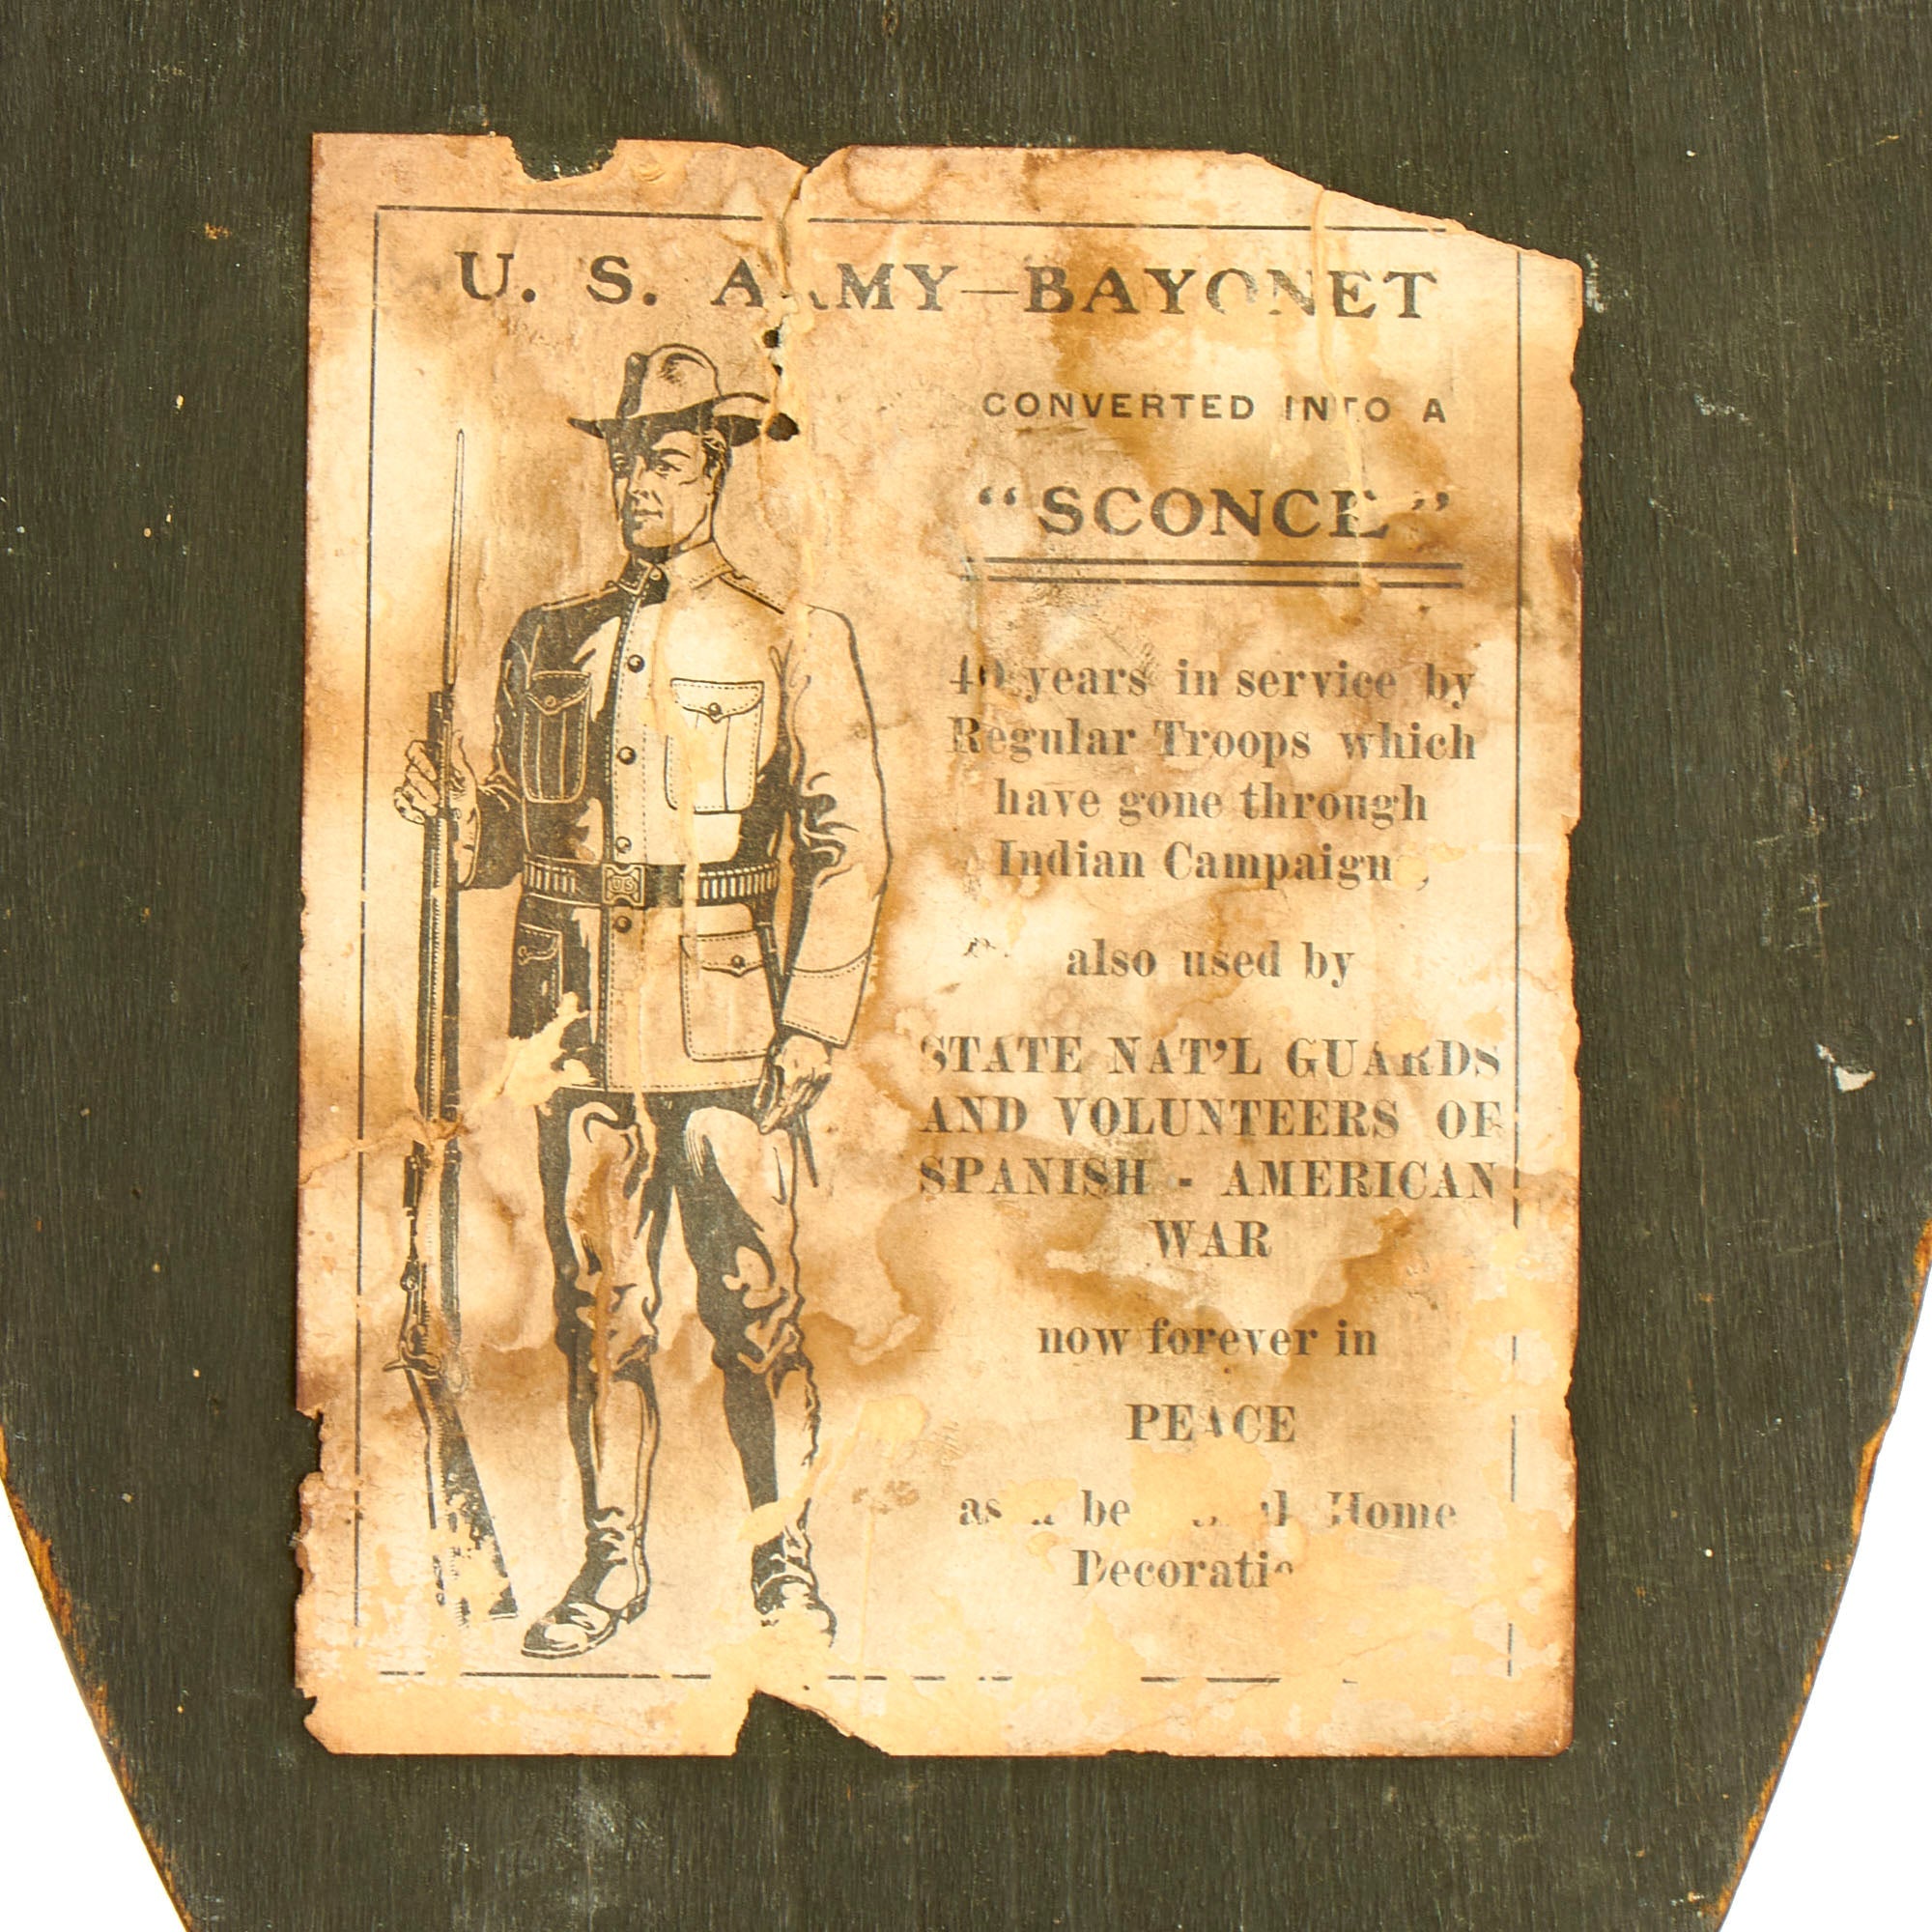 U. S. ARMY—BAYONET
CONVERTED INTO A
“SCONCE”
40 years in service by
Regular Troops which
have gone through
Indian Campaigns,
also used by
STATE NAT’L GUARDS
AND VOLUNTEERS OF
SPANISH - AMERICAN
WAR
now forever in
PEACE
as Home
Decoration
US